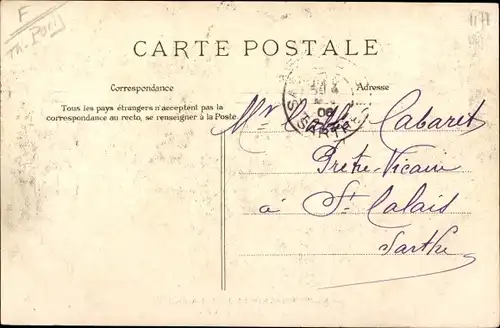 F
Th. Pari
1177
CARTE POSTALE
Correspondance
Adresse
Tous les pays étrangers n'acceptent pas la
correspondance au recto, se renseigner à la Poste.
06
SARTHE
Mr Cabaret
Prêtre-Vicaire
à St Calais
Sarthe